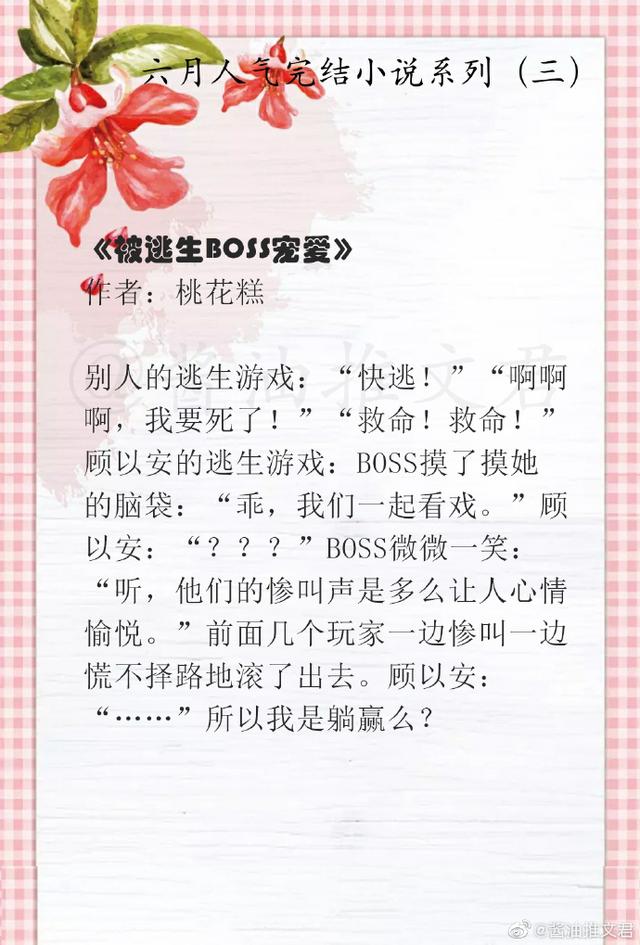 六月人气完结小说系列（三）
《被逃生BOSS宠爱》
作者：桃花糕
@酱油推文君
别人的逃生游戏：“快逃！”“啊啊
啊，我要死了！”“救命！救命！”
顾以安的逃生游戏：BOSS摸了摸她
的脑袋：“乖，我们一起看戏。”顾
以安：“？？？”BOSS微微一笑：
“听，他们的惨叫声是多么让人心情
愉悦。”前面几个玩家一边惨叫一边
慌不择路地滚了出去。顾以安：
“……”所以我是躺赢么？
@酱油推文君